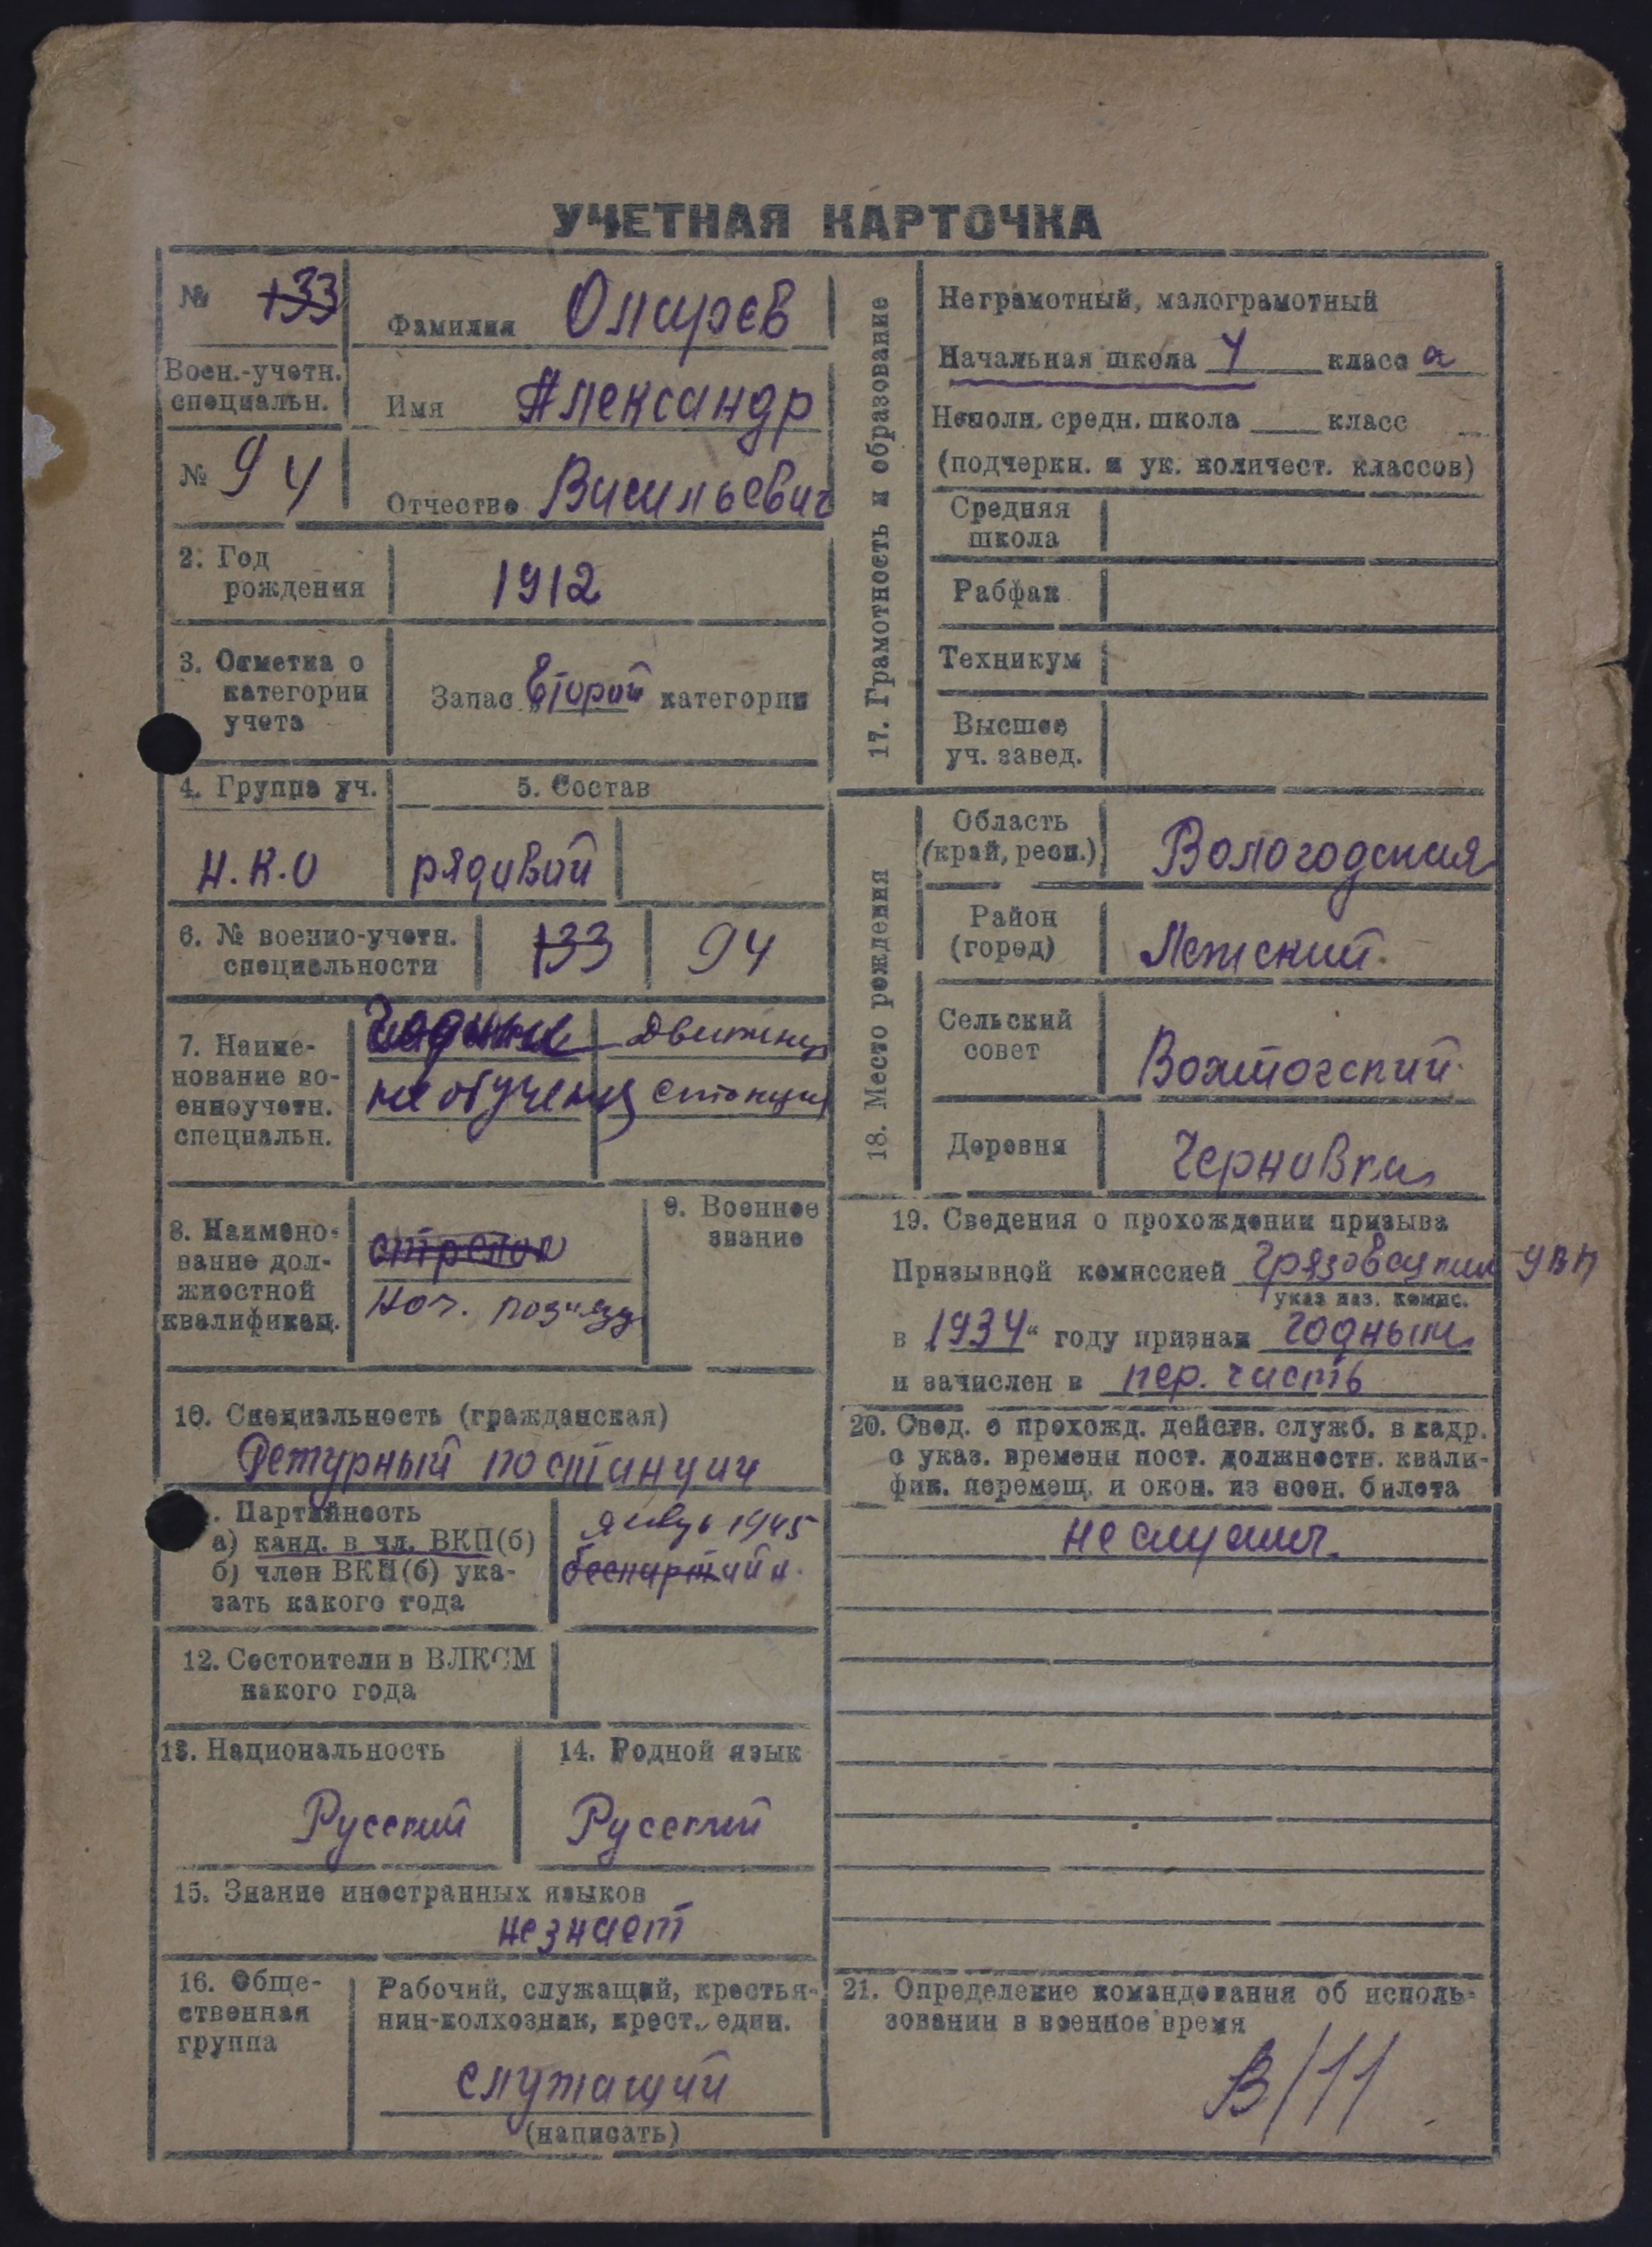 УЧЕТНАЯ КАРТОЧКА
№ 133
Фамилия Опарев
Воен.-учетн.
специальн.
Имя Александр
№ 94
Отчество Васильевич
2. Год
рождения
1912
3. Отметка о
категории
учета
Запас „второй категории
4. Группа уч.
5. Состав
Н.К.О
рядовой
6. № военно-учетн.
специальности
133
94
7. Наиме-
нование во-
енноучетн.
специальн.
необучен
движенец
станции
8. Наимено-
вание дол-
жностной
квалификац.
стрелок
Нач.
9. Военное
звание
10. Специальность (гражданская)
Дежурный по станции
. Партийность
а) канд. в чл. ВКП(б)
б) член ВКП(б) ука-
зать какого года
январь 1945
беспартийн.
12. Состоители в ВЛКСМ
какого года
13. Национальность
Русский
14. Родной язык
Русский
15. Знание иностранных языков
не знает
16. Обще-
ственная
группа
Рабочий, служащий, крестья-
нин-колхозник, крест. един.
служащий
(написать)
17. Грамотность и образование
Неграмотный, малограмотный
Начальная школа 4 класс а
Неполн. средн. школа ____ класс
(подчеркн. и ук. количест. классов)
Средняя
школа
Рабфак
Техникум
Высшее
уч. завед.
18. Место рождения
Область
(край, респ.)
Вологодская
Район
(город)
Лежский.
Сельский
совет
Вохтогский.
Деревня
Черновка
19. Сведения о прохождении призыва
Призывной комиссией Грязовецким УВК
указ наз. комис.
в „1934“ году признан годным
и зачислен в пер. часть
20. Свед. о прохожд. действ. служб. в кадр.
с указ. времени пост. должностн. квали-
фик. перемещ. и окон. из воен. билета
не служил.
21. Определение командования об исполь-
зовании в военное время
В/11